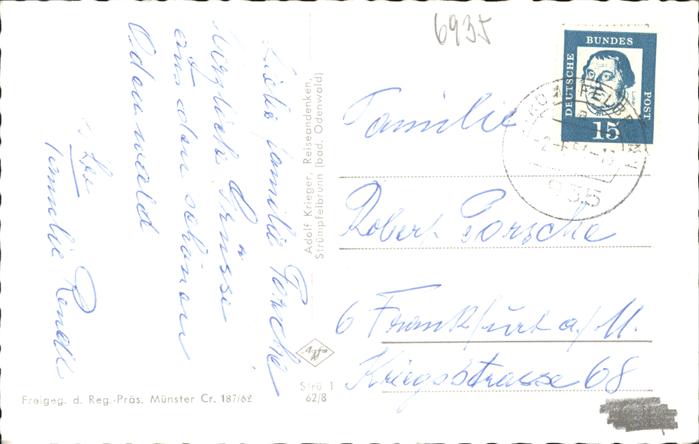 6935
Liebe Familie Porsche
herzliche Grüsse
aus dem schönen
Odenwald
Familie
Adolf Krieger, Reiseandenken,
Strümpfelbrunn (bad. Odenwald)
DEUTSCHE BUNDES POST
15
Familie
Robert Porsche
6 Frankfurt a/M.
Kriegstrasse 68
Strü 1
62/8
Freigeg. d. Reg.-Präs. Münster Cr. 187/62